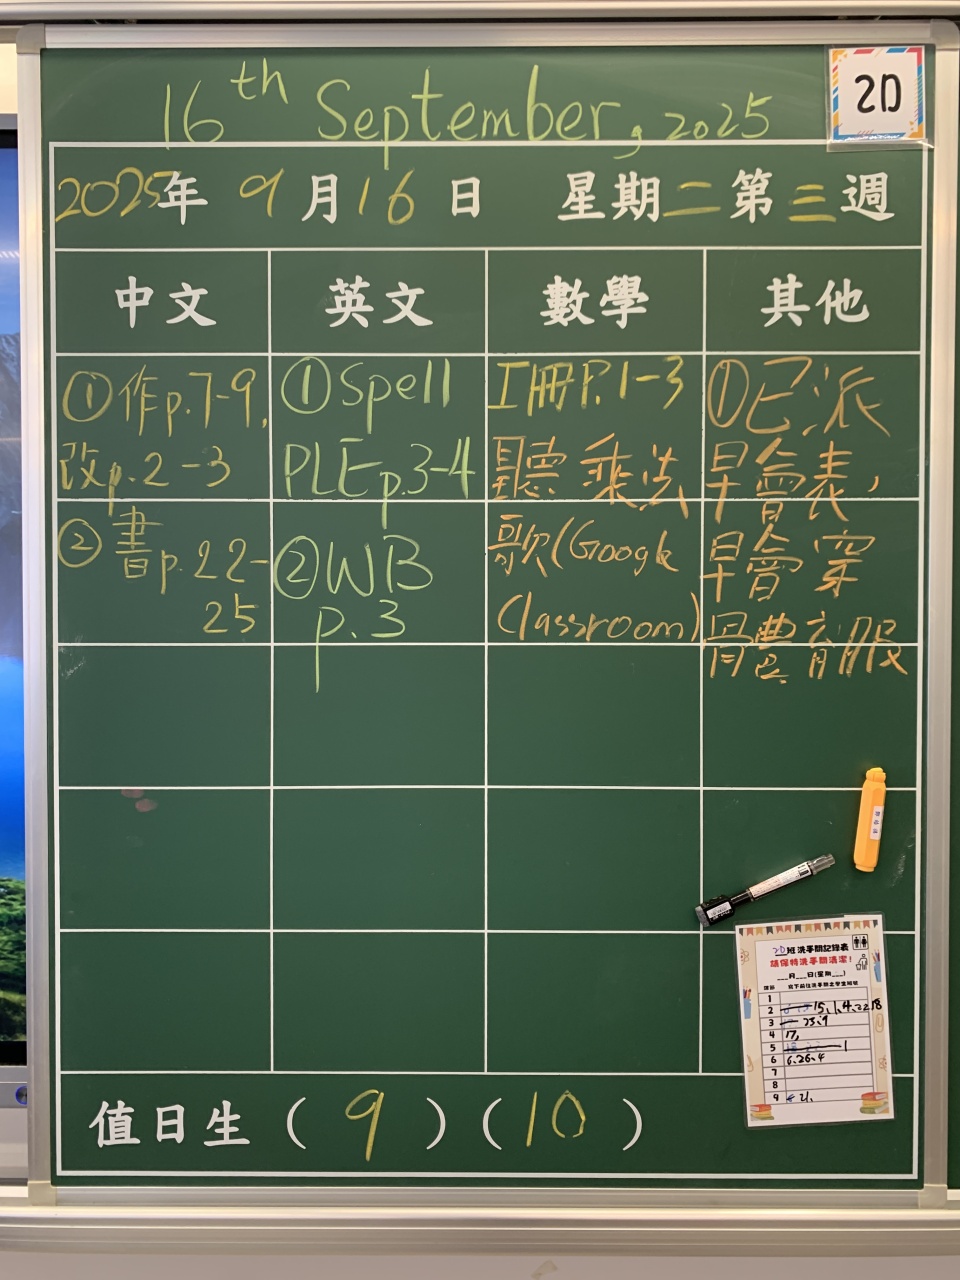 16th September, 2025
2D
2025年 9月16日 星期二第三週
中文
英文
數學
其他
①作p.7-9,
改p.2-3
②書p.22-
25
①Spell
PLE p.3-4
②WB
p.3
工冊P.1-3
聽乘法
歌(Google
Classroom)
①已派
早會表,
早會穿
體育服
值日生(9)(10)
2D班洗手間記錄表
請保持洗手間清潔!
___月___日(星期___)
課節 寫下前往洗手間之學生班號
1
2 15、1、4、22、18
3 25、9
4 17,
5 1
6 6、26、4
7
8
9 21、